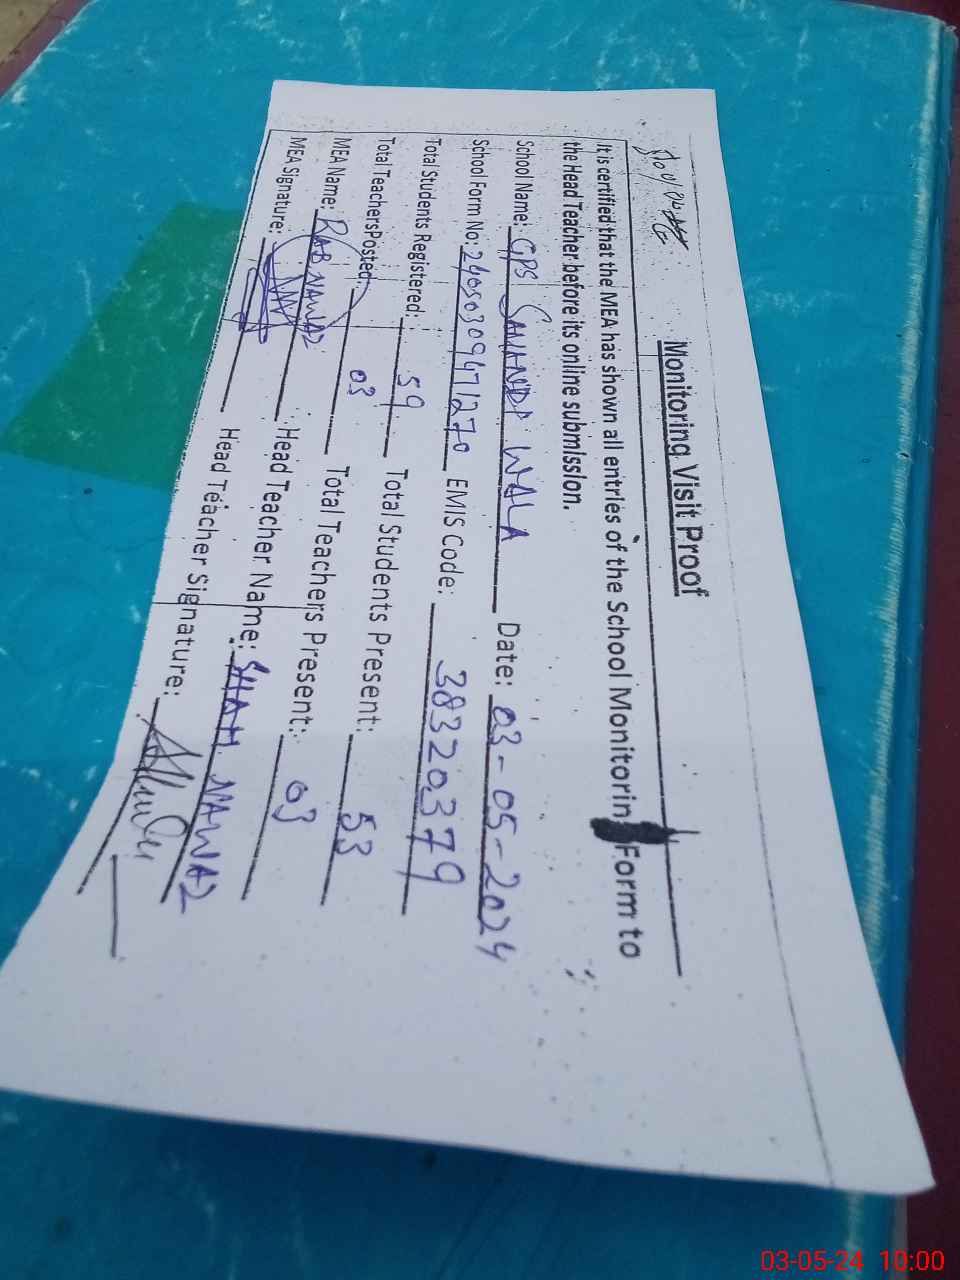 Monitoring Visit Proof
It is certified that the MEA has shown all entries of the School Monitorin Form to
the Head Teacher before its online submission.
School Name: GPS SAWANDI WALA Date: 03-05-2024
School Form No: 24050309471270 EMIS Code: 38320379
Total Students Registered: 59 Total Students Present: 53
Total TeachersPosted: 03 Total Teachers Present: 03
MEA Name: RAB NAWAZ Head Teacher Name: SHAH NAWAZ
MEA Signature: Head Teacher Signature:
03-05-24 10:00